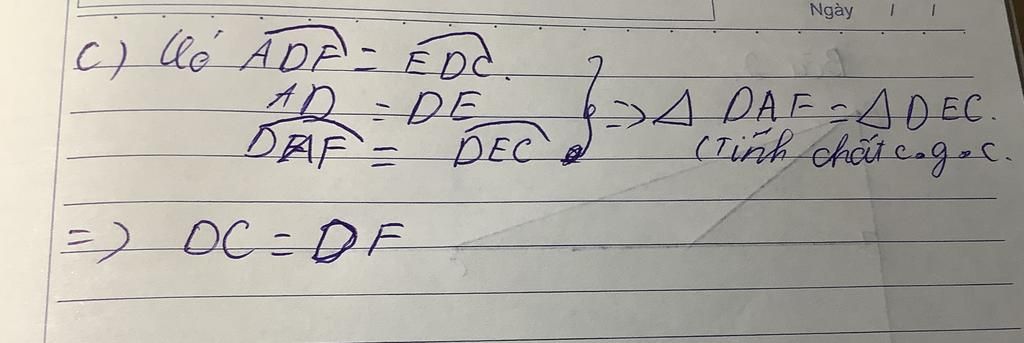 Ngày / /
c) Có ADF = EDC.
AD = DE
DAF = DEC } => Δ DAF = Δ DEC.
(Tính chất c.g.c.
=> DC = DF